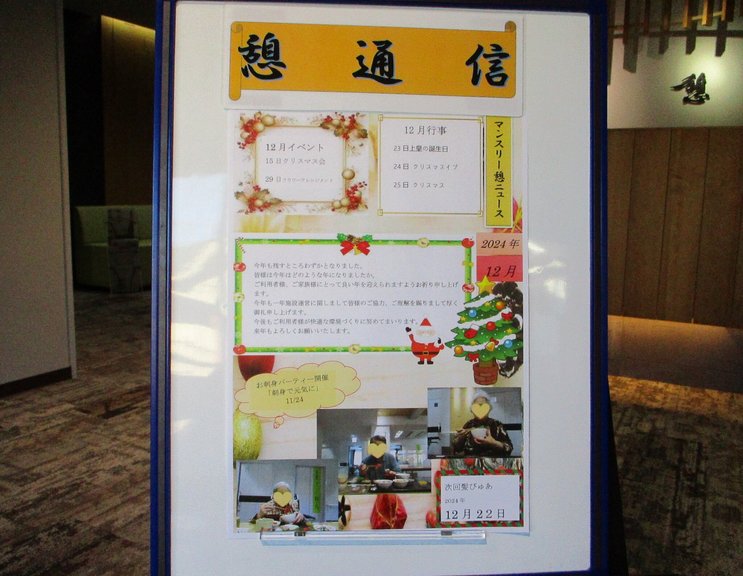 憩通信
憩
12月イベント
15日クリスマス会
29日フラワーアレンジメント
12月行事
23日上皇の誕生日
24日 クリスマスイブ
25日 クリスマス
マンスリー憩ニュース
2024年
12月
今年も残すところわずかとなりました。
皆様は今年はどのような年になりましたか。
ご利用者様、ご家族様にとって良い年を迎えられますようお祈り申し上げ
ます。
今年も一年施設運営に関しまして皆様のご協力、ご理解を賜りまして厚く
御礼申し上げます。
今後もご利用者様が快適な環境づくりに努めてまいります。
来年もよろしくお願いいたします。
お刺身パーティー開催
「刺身で元気に」
11/24
次回髪びゅあ
2024年
12月22日